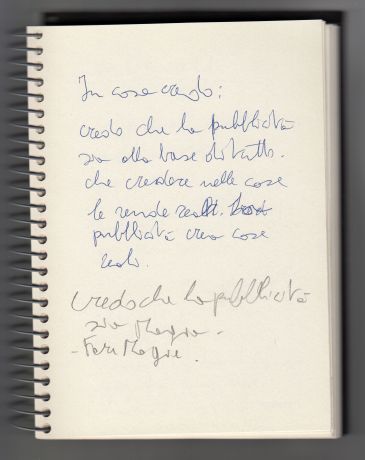 In cosa credo:
credo che la pubblicità
sia alla base di tutto.
che credere nelle cose
le rende reali.
pubblicità crea cose
reali.
credo che la pubblicità
sia Magia.
- Fare Magie.